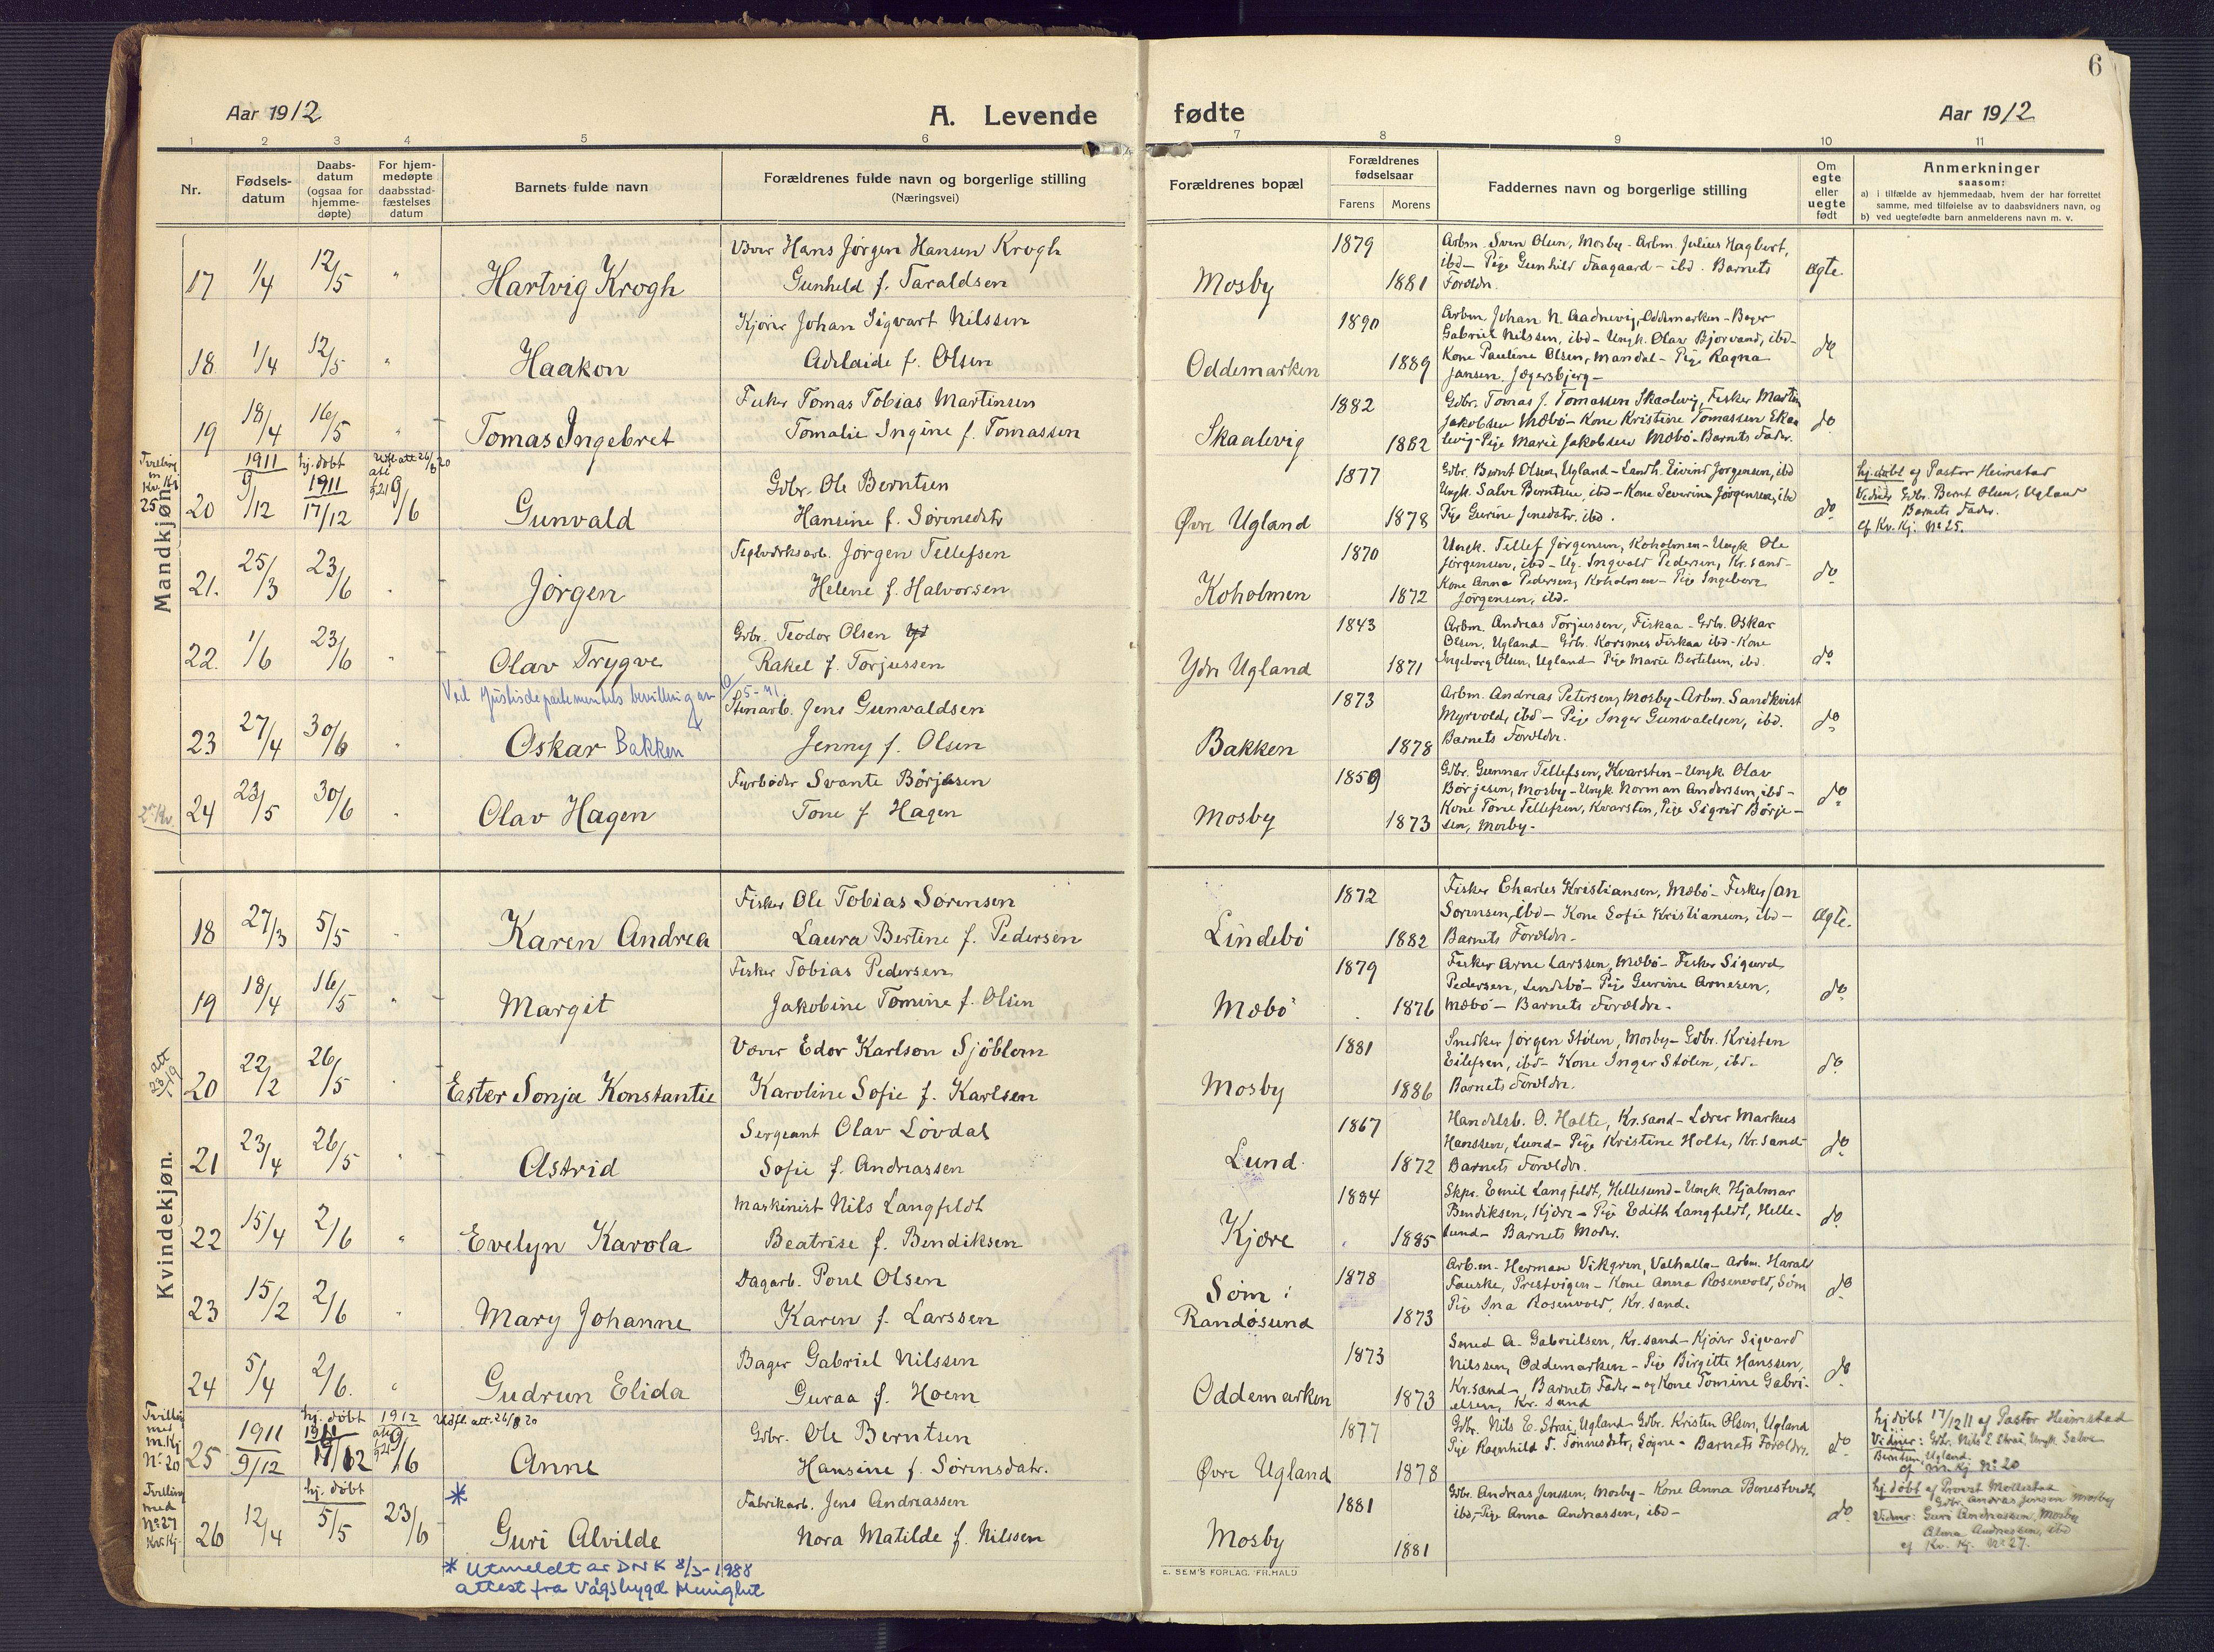 6
Aar 1912
A. Levende fødte
Aar 1912
1 2 3 4 5 6 7 8 9 10 11
Nr.
Fødsels-
datum
Daabs-
datum
(ogsaa for
hjemme-
døpte)
For hjem-
medøpte
daabsstad-
fæstelses
datum
Barnets fulde navn
Forældrenes fulde navn og borgerlige stilling
(Næringsvei)
Forældrenes bopæl
Forældrenes
fødselsaar
Farens Morens
Faddernes navn og borgerlige stilling
Om
egte
eller
uegte
født
Anmerkninger
saasom:
a) i tilfælde av hjemmedaab, hvem der har forrettet
samme, med tilføielse av to daabsvidners navn, og
b) ved uegtefødte barn anmelderens navn m. v.
Mandkjøn.
17 1/4 12/5 " Hartvig Krogh
Væver Hans Jørgen Hansen Krogh
Gunhild f. Taraldsen
Mosby 1879 1881
Arbm. Sven Olsen, Mosby - Arbm. Julius Hagbert,
ibd - Pige Gunhild Faagaard - ibd. Barnets
Forældr.
ægte.
18 1/4 12/5 " Haakon
Kjører Johan Sigvart Nilssen
Adelaide f. Olsen
Oddemarken 1890 1889
Arbm. Johan N. Aadnevig, Oddemarken - Bager
Gabriel Nilssen, ibd - Ungk. Olav Bjorvand, ibd -
Kone Pauline Olsen, Mandal - Pige Ragna
Jansen. Jægersbjerg -
do
19 18/4 16/5 " Tomas Ingebret
Fisker Tomas Tobias Martinsen
Tomalie Ingine f. Tomassen
Skaalevig 1882 1882
Gdbr. Tomas J. Tomassen Skaalevig, Fisker Martin
Jakobsen Mæbö - Kone Kristine Tomassen Skaa
levig - Pige Marie Jakobsen Mæbö - Barnets Fader.
do
Tvilling
m
Kv. Kj
25
20 1911 9/12 hj. döbt 1911 17/12 Udfl. att 26/8 20 9/6 Gunvald
Gdbr. Ole Berntsen
Hansine f. Sørensdatr
Øvre Ugland 1877 1878
Gdbr. Bernt Olsen, Ugland - Landh. Eivind Jørgensen, ibd
Ungk. Salve Berntsen, ibd - Kone Severine Jørgensen, ibd
Pige Gurine Jensdatr. ibd.
do
hj. döbt af Pastor Heimstad
Vidner Gdbr. Bernt Olsen, Ugland
Barnets Fader.
cf Kv. Kj. No 25.
21. 25/3 23/6 " Jørgen
Teglverksarb. Jørgen Tellefsen
Helene f. Halvorsen
Koholmen 1870 1872
Ungk. Tellef Jørgensen, Koholmen - Ungk Ole
Jørgensen, ibd - Ug. Ingvald Pedersen, Kr. sand -
Kone Anna Pedersen, Koholmen - Pige Ingeborg
Jørgensen, ibd.
do
22. 1/6 23/6 " Olav Trygve
Gdbr. Teodor Olsen
Rakel f. Torjussen
Ydre Ugland 1843 1871
Arbm. Andreas Torjussen, Fiskaa - Gdbr. Oskar
Olsen, Ugland - Gdbr. Korsmes Fiskaa ibd - Kone
Ingeborg Olsen, Ugland - Pige Marie Bertelsen, ibd.
do
Ved Justisdepartementets bevilling av 6/5-41.
23 27/4 30/6 " Oskar Bakken
Stenarb. Jens Gunvaldsen
Jenny f. Olsen
Bakken 1873 1878
Arbm. Andreas Petersen, Mosby - Arbm. Sandkvist
Myrvold, ibd - Pige Inger Gunvaldsen, ibd.
Barnets Forældr.
do
24 23/5 30/6 " Olav Hagen
Fyrbøder Svante Börjesen
Tone f Hagen
Mosby 1859 1873
Gdbr. Gunnar Tellefsen, Kvarsten - Ungk Olav
Börjesen, Mosby - Ungk Norman Anderssen, ibd -
Kone Tone Tellefsen, Kvarsten, Pige Sigrid Börje -
sen, Mosby -
do
Kvindekjøn.
18 27/3 5/5 " Karen Andrea
Fisker Ole Tobias Sørensen
Laura Bertine f. Pedersen
Lindebö 1872 1882
Fisker Charles Kristiansen, Mæbö - Fisker Jan
Sørensen, ibd - Kone Sofie Kristiansen, ibd -
Barnets Forældr.
ægte.
19 18/4 16/5 " Margit
Fisker Tobias Pedersen
Jakobine Tomine f. Olsen
Mæbö 1879 1876
Fisker Arne Larssen, Mæbö - Fisker Sigurd
Pedersen, Lindebö - Pige Gurine Arnesen,
Mæbö - Barnets Forældre.
do
att
23/-19
20 22/2 26/5 " Ester Sonja Konstantie
Væver Edor Karlson Sjöblom
Karoline Sofie f. Karlsen
Mosby 1881 1886
Snedker Jørgen Stølen, Mosby - Gdbr. Kristen
Eilefsen, ibd - Kone Inger Stølen, ibd.
Barnets Forældr.
do
21 23/4 26/5 " Astrid
Sergeant Olav Lövdal
Sofie f. Andreassen
Lund 1867 1872
Handelsb. O. Holte, Kr.sand - Lærer Markus
Hanssen, Lund - Pige Kristine Holte, Kr. sand -
Barnets Forældr.
do
22 15/4 2/6 " Evelyn Karola
Maskinist Nils Langfeldt
Beatrise f. Bendiksen
Kjære 1884 1885
Skpr. Emil Langfeldt, Hellesund - Ungk. Hjalmar
Bendiksen, Kjære - Pige Edith Langfeldt, Helle-
sund - Barnets Moder.
do
23 15/2 2/6 " Mary Johanne
Dagarb. Poul Olsen
Karen f. Larssen
Søm:
Randøsund 1878 1873
Arb.m - Herman Vikgren, Valhalla - Arbm. Harald
Fauske, Prestvigen - Kone Anna Rosenvold, Søm
Pige Ina Rosenvold, Kr. sand.
do
24 5/4 2/6. " Gudrun Elida
Bager Gabriel Nilssen
Guraa f. Hoem
Oddemarken 1873 1873
Smed A. Gabrielsen, Kr. sand - Kjører Sigvard
Nilssen, Oddemarken - Pige Birgitte Hanssen,
Kr. sand -, Barnets Fader - og Kone Tomine Gabri-
elsen, Kr. sand
do
Tvilling
med
M.Kj
No 20
25 1911 9/12 hj. döbt 1911 17/12 1912 9/6 Udfl. att. 26/8 20 Anne
Gdbr. Ole Berntsen
Hansine f. Sørensdatr.
Øvre Ugland 1877 1878
Gdbr. Nils E. Strai, Ugland - Gdbr. Kristen Olsen, Ugland
Pige Ragnhild T. Tønnesdatr, Søgne - Barnets Forældr.
do
hj döbt 17/12 11 af Pastor Heimstad
Vidner: Gdbr. Nils E Strai, Ungk Salve
Berntsen, Ugland.
cf M. Kj. No 20
Tvilling
med
No 27
Kv. Kj.
26 12/4 hj. döbt 5/5 23/6 * Guri Alvilde
Fabrikarb. Jens Andreassen
Nora Matilde f. Nilssen
Mosby 1881 1881
Gdbr. Andreas Jenssen, Mosby - Kone Anna Benestvedt,
ibd, - Pige Anna Andreassen, ibd -
do
hj. döbt af Provst Mollestad
Gdbr. Andreas Jensen Mosby
Vidner: Guri Andreassen, Mosby
Alma Andreassen, ibd
cf Kv. Kj. No 27.
* Utmeldt av DNK 8/3-1988
attest fra Vågsbygd Menighet
E. SEM'S FORLAG, FR.HALD